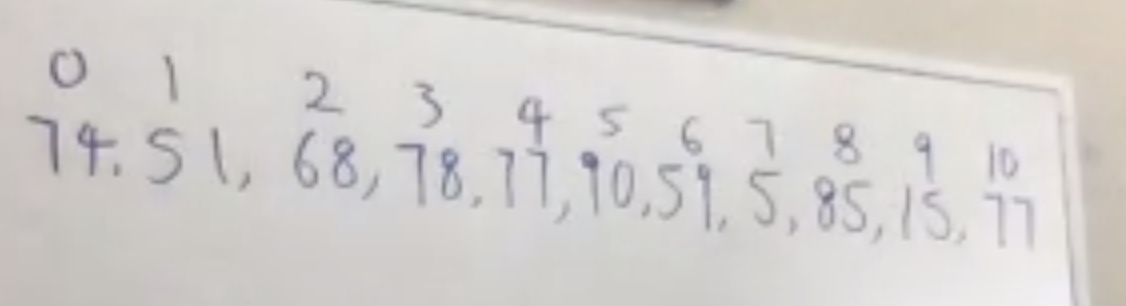 0 1 2 3 4 5 6 7 8 9 10
74. 51, 68, 78, 77, 90, 59, 5, 85, 15, 77